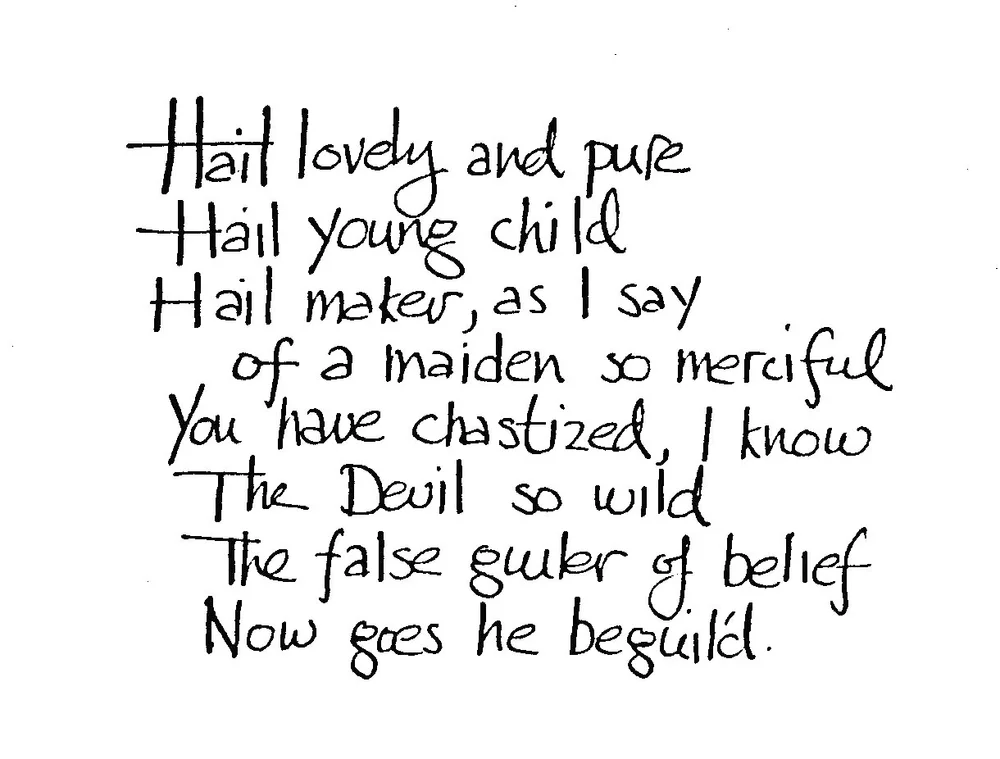 Hail lovely and pure
Hail young child
Hail maker, as I say
of a maiden so merciful
You have chastized, I know
The Devil so wild
The false of belief
Now goes he beguil'd.